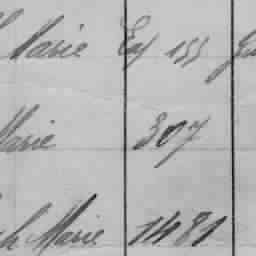 Marie Exp 155
Marie 307
Marie 1481